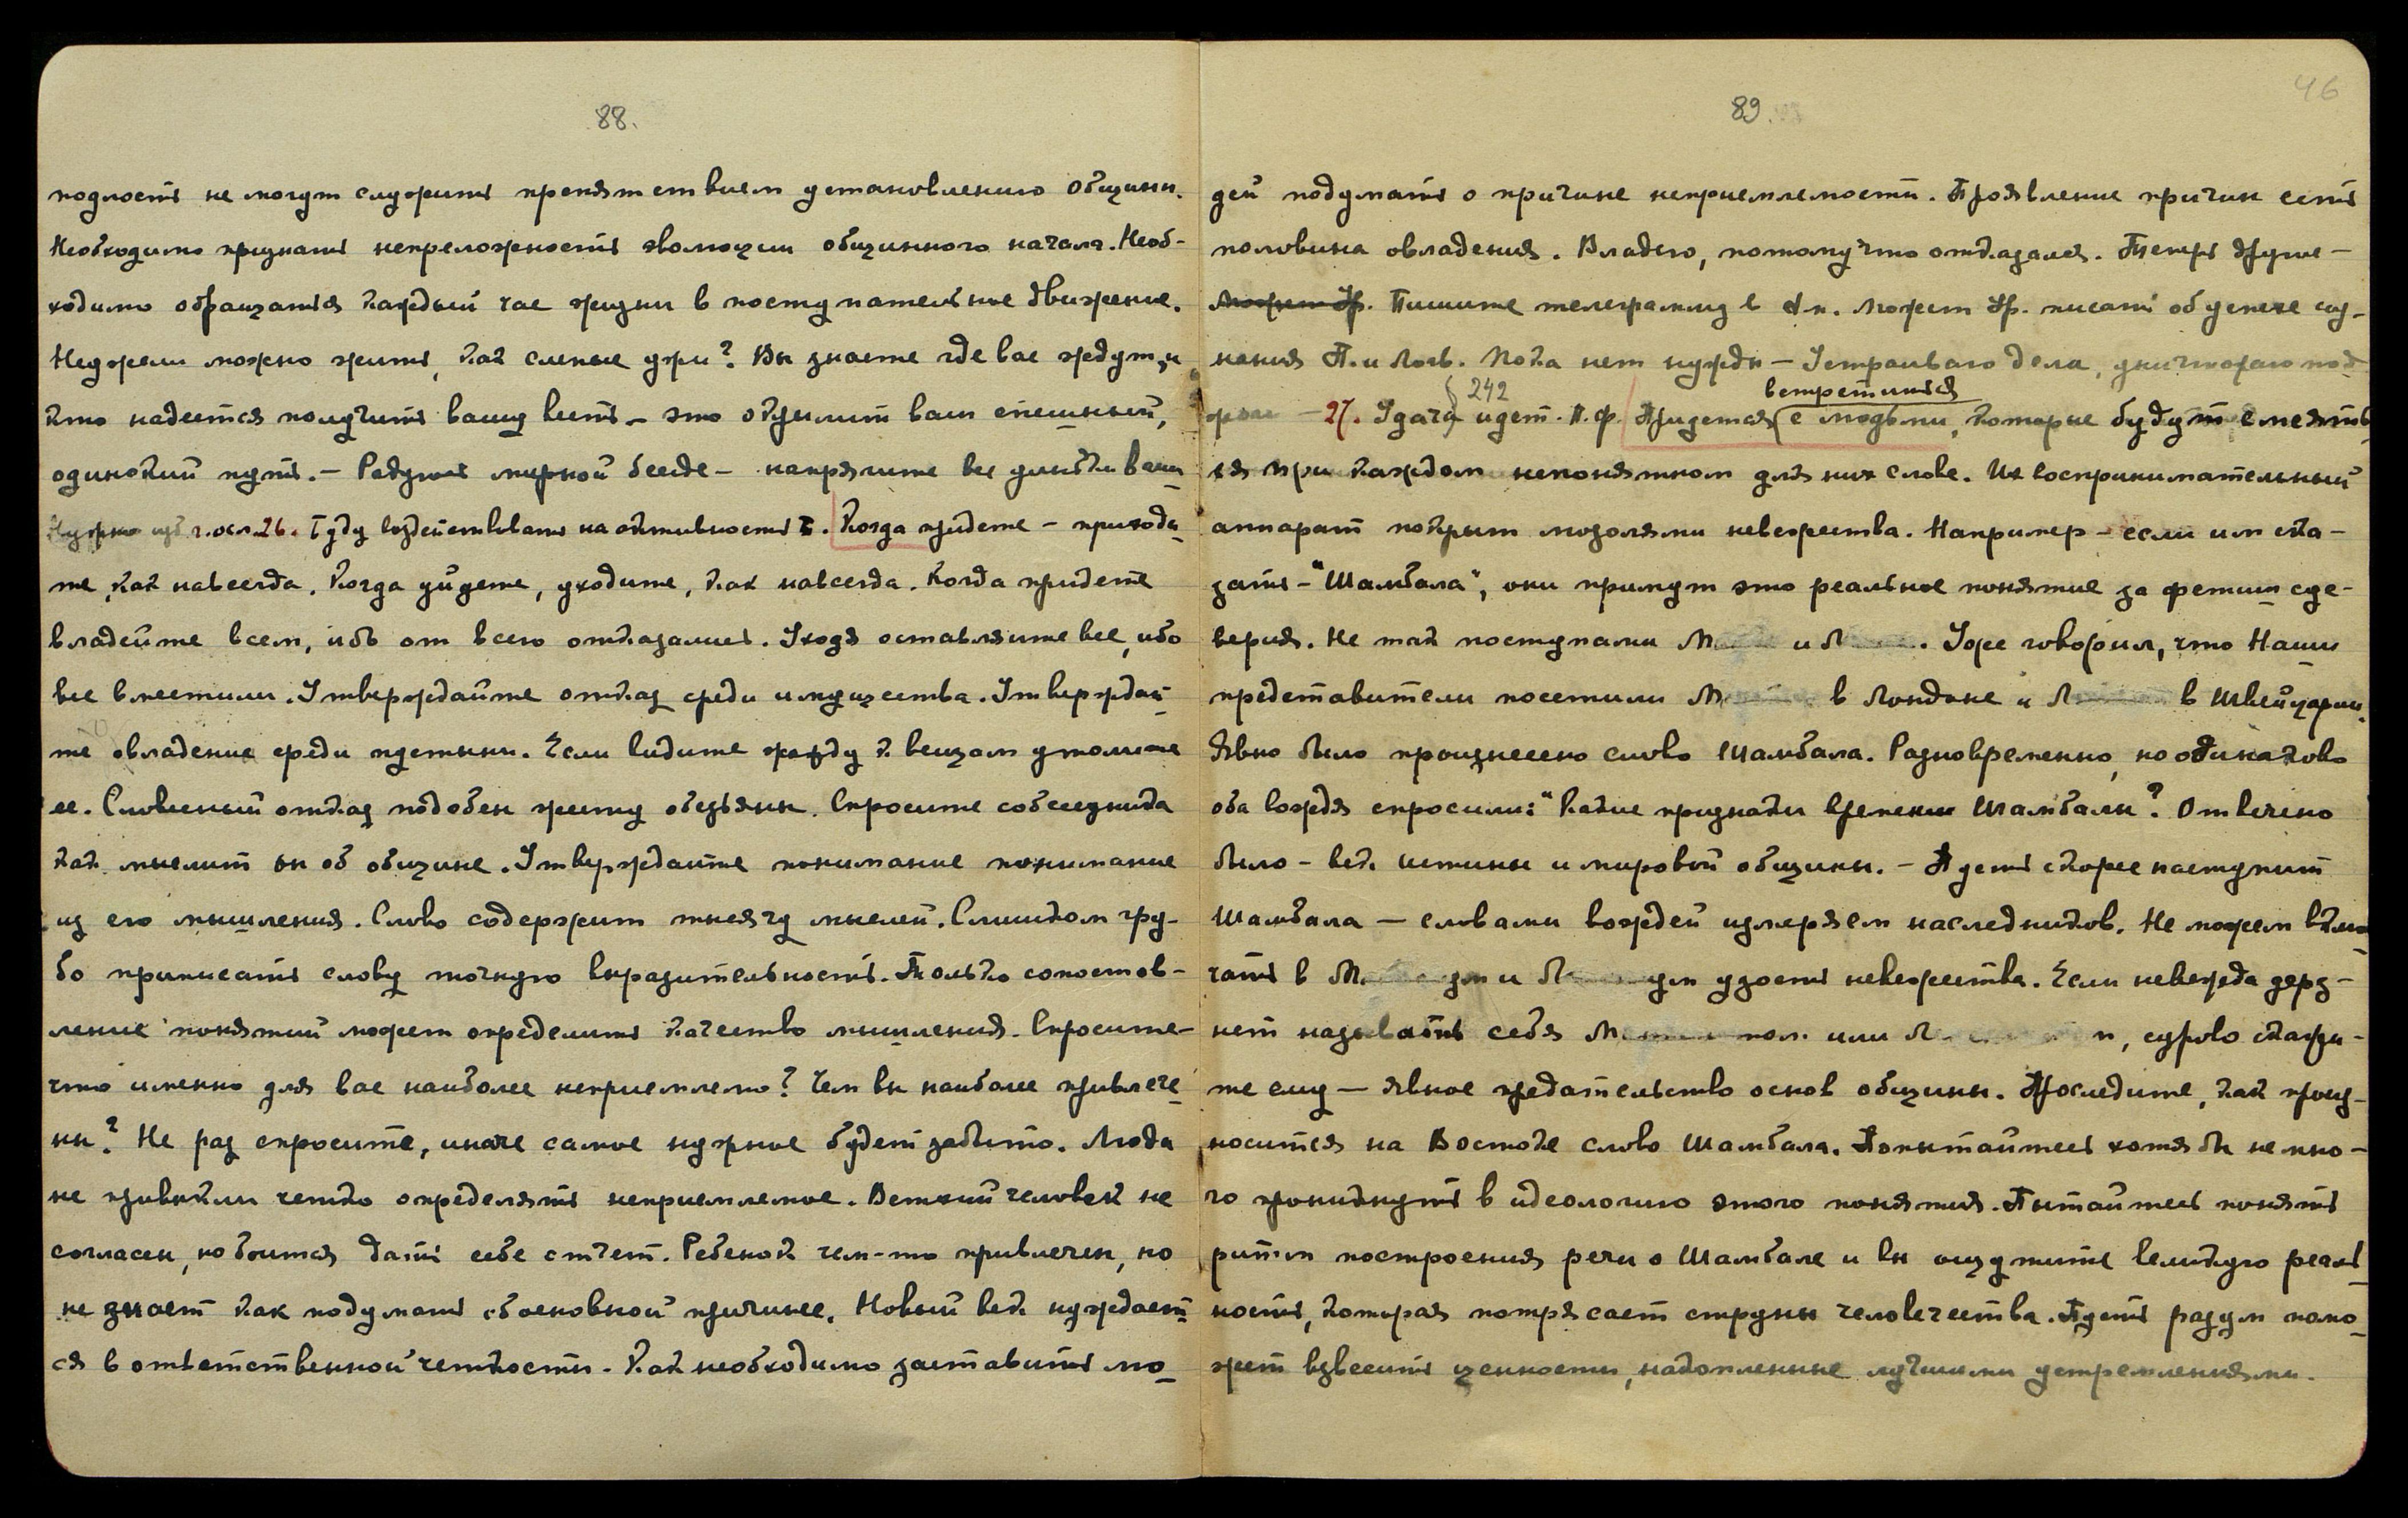 88.
подлость не могут служить препятствием установлению общины.
Необходимо признать непреложность эволюции общинного начала. Необ-
ходимо обращаться каждый час жизни в поступательное движение.
Неужели можно жить, как слепые ужи? Вы знаете где вас ждут, и
кто надеется получить вашу весть – это окрылит ваш спешный,
одинокий путь. – Радуюсь мирной беседе – напрягите все улыбки ваши
26. Буду воздействовать на активность Когда придете – приходи
те, как навсегда. Когда уйдете, уходите, как навсегда. Когда придете
владейте всем, ибо от всего отказались. Уходя оставляйте все, ибо
все вместили. Утверждайте отказ среди имущества. Утверждай
те овладение среди пустыни. Если видите жажду к вещам утолите
ее. Словесный отказ подобен жесту обезьяны. Спросите собеседника
как мыслит он об общине. Утверждайте понимание понимание
из его мышления. Слово содержит тысячу мыслей. Слишком гру-
бо приписать слову точную выразительность. Только сопостав-
ление понятий может определить качество мышления. Спросите –
что именно для вас наиболее неприемлемо? Чем вы наиболее привлече
ны? Не раз спросите, иначе самое нужное будет забыто. Люди
не привыкли четко определять неприемлемое. Ветхий человек не
согласен, но боится дать себе отчет. Ребенок чем-то привлечен, но
не знает как подумать об основной причине. Новый век нуждает
ся в ответственной четкости. Как необходимо заставить лю
46
89.
дей подумать о причине неприемлемости. Проявление причин есть
половина овладения. Владею, потому что отказался. Теперь другие –
Может Пишите телеграмму в Ам. Может писать об успехе
П. и Логв. Пока нет нужды – Устраиваю дела, уничтожаю под
§ 242
встретиться
27. Удача идет. Придется с людьми, которые будут смеять
ся при каждом непонятном для них слове. Их воспринимательный
аппарат покрыт мозолями невежества. Например – если им ска-
зать – "Шамбала", они примут это реальное понятие за фетиш суе-
верия. Не так поступали М и Л . Уже говорил, что Наши
представители посетили М в Лондоне и Л в Швейцарии.
Явно было произнесено слово Шамбала. Разновременно, но одинаково
оба вождя спросили: "Какие признаки времени Шамбалы? Отвечено
было – век истины и мировой общины. – Пусть скорее наступит
Шамбала – словами вождей измеряем наследников. Не можем вклю
чать в М зм и Л зм узость невежества. Если невежда дерз-
нет называть себя М или Л , сурово скажи-
те ему – явное предательство основ общины. Проследите, как произ-
носится на Востоке слово Шамбала. Попытайтесь хотя бы немно-
го проникнуть в идеологию этого понятия. Пытайтесь понять
ритм построения речи о Шамбале и вы ощутите великую реаль
ность, которая потрясает струны человечества. Пусть разум помо
жет взвесить ценности, накопленные лучшими устремлениями.